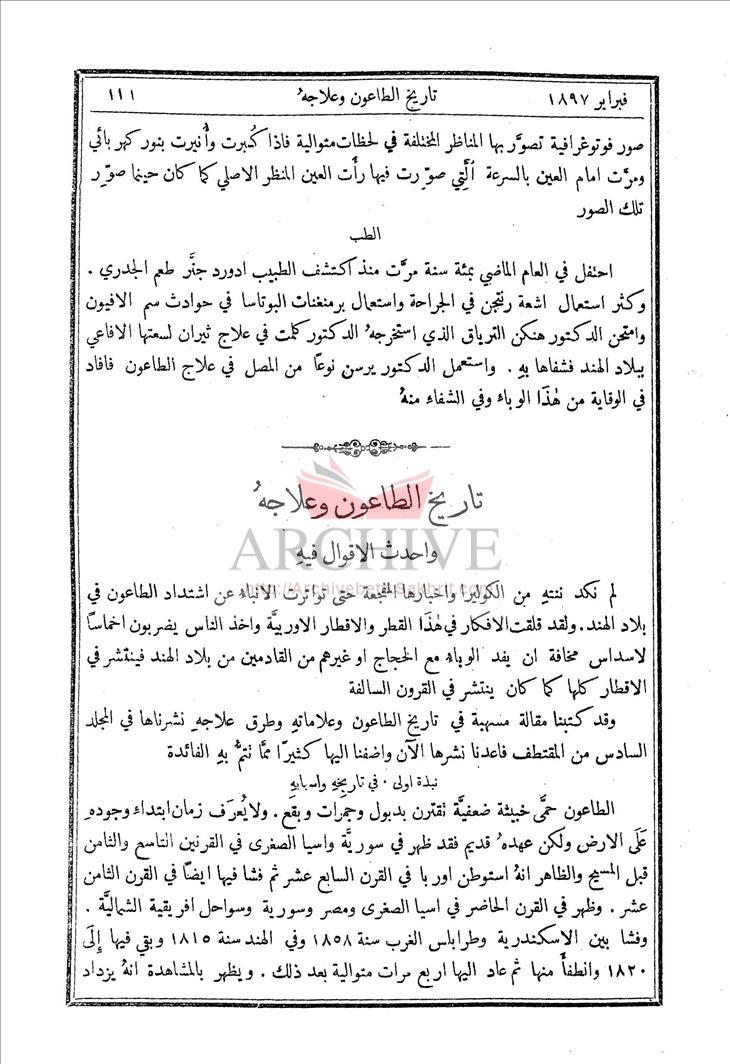 فبراير ١٨٩٧
تاريخ الطاعون وعلاجهُ
١١١
صور فوتوغرافية تصوَّر بها المناظر المختلفة في لحظات متوالية فاذا كُبرت وأُنيرت بنور كهربائي
ومرَّت امام العين بالسرعة الَّتي صوّرت فيها رأَت العين المنظر الاصلي كما كان حينما صوّر
تلك الصور
الطب
احتفل في العام الماضي بمئة سنة مرَّت منذ اكتشف الطبيب ادورد جنَّر طعم الجدري .
وكثر استعمال اشعة رنتجن في الجراحة واستعمال برمنغنات البوتاسا في حوادث سم الافيون
وامتحن الدكتور هنكن الترياق الذي استخرجهُ الدكتور كلمت في علاج ثيران لسعتها الافاعي
ببلاد الهند فشفاها بهِ . واستعمل الدكتور يرسن نوعًا من المصل في علاج الطاعون فافاد
في الوقاية من هٰذا الوباء وفي الشفاء منهُ
تاريخ الطاعون وعلاجهُ
ARCHIVE
واحدث الاقوال فيهِ
http://Archivebeta.Sakhrit.com
لم نكد ننته من الكوليرا واخبارها المفجعة حتى تواترت الانباء عن اشتداد الطاعون في
بلاد الهند. ولقد قلقت الافكار في هٰذا القطر والاقطار الاوربيَّة واخذ الناس يضربون اخماسًا
لاسداس مخافة ان يفد الوباء مع الحجاج او غيرهم من القادمين من بلاد الهند فينتشر في
الاقطار كلها كما كان ينتشر في القرون السالفة
وقد كتبنا مقالة مسهبة في تاريخ الطاعون وعلاماتهِ وطرق علاجهِ نشرناها في المجلد
السادس من المقتطف فاعدنا نشرها الآن واضفنا اليها كثيرًا ممَّا تتمُّ بهِ الفائدة
نبذة اولى . في تاريخهِ واسبابهِ
الطاعون حمَّى خبيثة ضعفيَّة تقترن بدبول وجمرات وبقع . ولا يُعرَف زمان ابتداء وجودهِ
عَلَى الارض ولكن عهدهُ قديم فقد ظهر في سوريَّة واسيا الصغرى في القرنين التاسع والثامن
قبل المسيح والظاهر انهُ استوطن اوربا في القرن السابع عشر ثم فشا فيها ايضًا في القرن الثامن
عشر . وظهر في القرن الحاضر في اسيا الصغرى ومصر وسورية وسواحل افريقية الشماليَّة .
وفشا بين الاسكندرية وطرابلس الغرب سنة ١٨٥٨ وفي الهند سنة ١٨١٥ وبقي فيها إِلَى
١٨٢٠ وانطفأَ منها ثم عاد اليها اربع مرات متوالية بعد ذلك . ويظهر بالمشاهدة انهُ يزداد